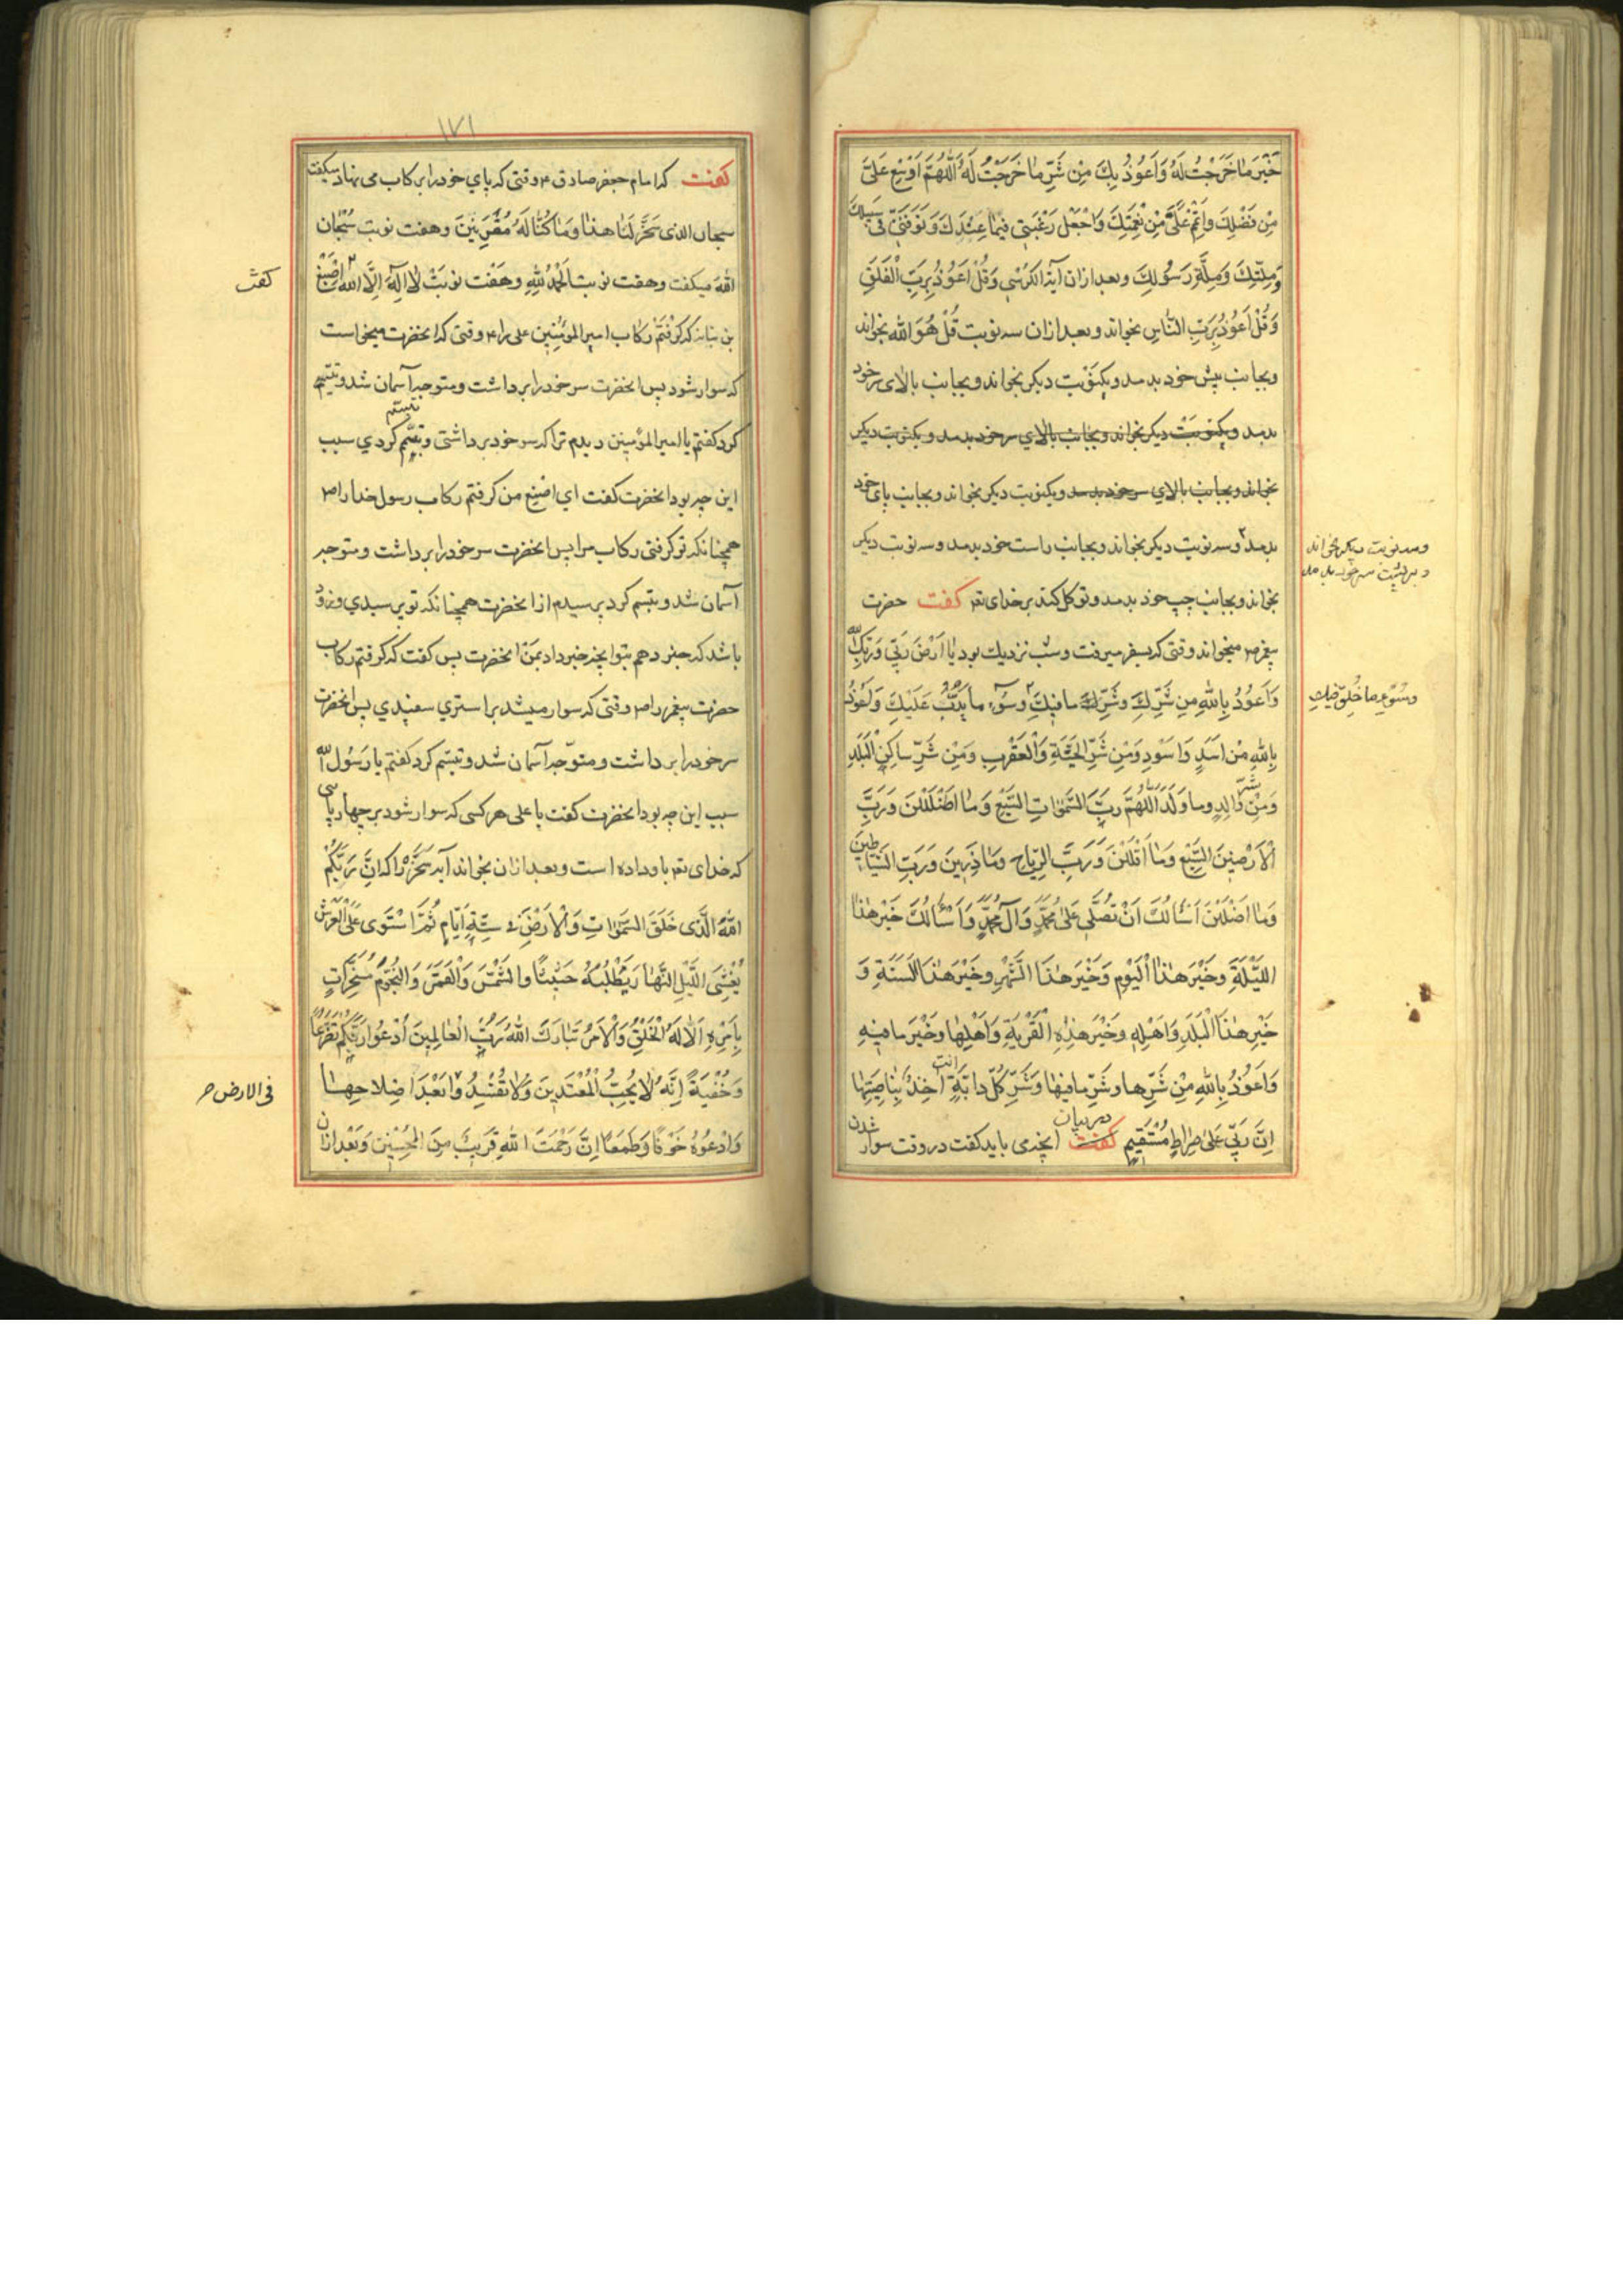 خَيْرَ مٰا خَرَجْتُ لَهُ وَاَعُوذُ بِكَ مِنْ شَرِّ مٰا خَرَجْتُ لَهُ اَللّٰهُمَّ اَوْسِعْ عَلَىَّ
مِنْ فَضْلِكَ وَاَتْمِمْ عَلَىَّ مِنْ نِعْمَتِكَ وَاجْعَلْ رَغْبَتِى فِيمٰا عِنْدَكَ وَتَوَفَّنِى فى سَبيلِكَ
وَمِلَّتِكَ وَمِلَّةِ رَسُولِكَ وبعد ازان آية الكرسى وَقُلْ اَعُوذُ بِرَبِّ الْفَلَقِ
وَقُلْ اَعُوذُ بِرَبِّ النّٰاسِ بخواند وبعد ازان سه نوبت قُلْ هُوَ الله بخواند
وبجانب پيش خود بدمد ويكنوبت ديكر بخواند وبجانب بالاى سر خود
بدمد ويكنوبت ديكر بخواند وبجانب بالاي سر خود بدمد ويكنوبت ديكر
بخواند وبجانب بالاي سر خود بدمد ويكنوبت ديكر بخواند وبجانب پاى خود
بدمد وسه نوبت ديكر بخواند وبجانب راست خود بدمد وسه نوبت ديكر
وسه نوبت ديكر بخواند
و بر پشت سر خود بدمد
بخواند وبجانب چپ خود بدمد وتوكل كند بر خداى تعـ كفت حضرت
پيغمبر ص ميخواند وقتى كه بسفر ميرفت وشب نزديك بود يٰا اَرْضُ رَبِّى وَرَبُّكِ اللّٰه
وَاَعُوذُ بِاللّٰهِ مِن شَرِّكِ وَشَرِّ مافيكِ وسُوءِ ما يَدِبُّ عَلَيْكِ وَاَعُوذُ
وسُوءِ ما خُلِقَ فيكِ
بِاللّٰهِ مِنْ اَسَدٍ وَاَسْوَدٍ وَمِنْ شَرِّ الْحَيَّةِ وَالْعَقْرَبِ وَمِنْ شَرِّ سٰاكِنِ الْبَلَدِ
وَمِنْ شَرِّ وٰالِدٍ وما وَلَدَ اَللّٰهُمَّ رَبَّ السَّمٰوٰاتِ السَّبْعِ وَمٰا اَظْلَلْنَ وَرَبَّ
اَلْاَرَضينَ السَّبْعِ وَمٰا اَقْلَلْنَ وَرَبَّ الرِّيٰاحِ ومٰا ذَرَيْنَ وَرَبَّ الشَّيٰاطينَ
وَمٰا اَضْلَلْنَ اَسْاَلُكَ اَنْ تُصَلِّىَ عَلىٰ مُحَمَّدٍ وَآلِ مُحَمَّدٍ وَاَسْاَلُكَ خَيْرَ هٰذا
اللَّيْلَةِ وخَيْرَ هٰذَا الْيَوْمِ وَخَيْرَ هٰذَا الشَّهْرِ وخَيْرَ هٰذَا السَّنَةِ وَ
خَيْرَ هٰذَا الْبَلَدِ وَاَهْلِهِ وخَيْرَ هٰذِهِ الْقَرْيَةِ وَاَهْلِهٰا وخَيْرَ ما فيهِ
وَاَعُوذُ بِاللّٰهِ مِنْ شَرِّها وشَرِّ ما فيها وَشَرِّ كُلِّ دٰابَّةٍ انت آخِذٌ بِنٰاصِيَتِهٰا
اِنَّ رَبِّى عَلىٰ صِرٰاطٍ مُسْتَقيمٍ كفت در بيان انچه مى بايد كفت در وقت سوار شدن
١٧١
كفت كه امام جعفر صادق ع وقتى كه پاي خود را بركاب مى نهاد ميكفت
سبحان الذى سَخَّرَ لَنٰا هذا وَمٰا كُنّٰا لَهُ مُقْرِنينَ وهفت نوبت سُبْحان
الله ميكفت وهفت نوبت اَلْحَمْدُ لِلّٰهِ وهفت نوبت لٰا اِلٰهَ اِلَّا اللّٰه اصبغ
كفت
بن نباته كه كرفتم ركاب امير المؤمنين على را ع وقتى كه انحضرت ميخواست
كه سوار شود پس انحضرت سر خود را بر داشت ومتوجه آسمان شد وتبسم
كرد كفتم يا امير المؤمنين ديدم ترا كه سر خود برداشتى وتبسّم كردي سبب
تبسّم
اين چه بود انحضرت كفت اي اصبغ من كرفتم ركاب رسول خدا را ص
همچنانكه تو كرفتى ركاب مرا پس انحضرت سر خود را بر داشت ومتوجه
آسمان شد وتبسم كرد پرسيدم از انحضرت همچنانكه تو پرسيدي وزود
باشد كه خبر دهم بتو انچه خبر داد بمن انحضرت پس كفت كه كرفتم ركاب
حضرت پيغمبر را ص وقتى كه سوار ميشد بر استري سفيدي پس انحضرت
سر خود را بر داشت ومتوجّه آسمان شد وتبسم كرد كفتم يا رَسُول الله
سبب اين چه بود انحضرت كفت يا على هر كسى كه سوار شود بر چهارپايى
كه خداى تعـ باو داده است وبعد ازان بخواند آيه سَخَّرَه را كه اِنَّ رَبَّكُمُ
اللّٰهُ الَّذى خَلَقَ السَّمٰوٰاتِ وَالْاَرْضَ فى سِتَّةِ اَيّٰامٍ ثُمَّ اسْتَوىٰ عَلَى الْعَرْشِ
يُغْشِى اللَّيْلَ النَّهٰارَ يَطْلُبُهُ حَثيثًا والشَّمْسَ وَالْقَمَرَ وَالنُّجُومَ مُسَخَّرٰاتٍ
بِاَمْرِهِ اَلٰا لَهُ الْخَلْقُ وَالْاَمْرُ تَبٰارَكَ اللّٰهُ رَبُّ الْعٰالَمينَ اُدْعُوا رَبَّكُمْ تَضَرُّعًا
وَخُفْيَةً اِنَّهُ لٰا يُحِبُّ الْمُعْتَدينَ وَلٰا تُفْسِدُوا بَعْدَ اِصْلاحِهٰا
فى الارض
وَادْعُوهُ خَوْفًا وَطَمَعًا اِنَّ رَحْمَتَ اللّٰهِ قَريبٌ مِنَ الْمُحْسِنينَ وَبَعْد ازان